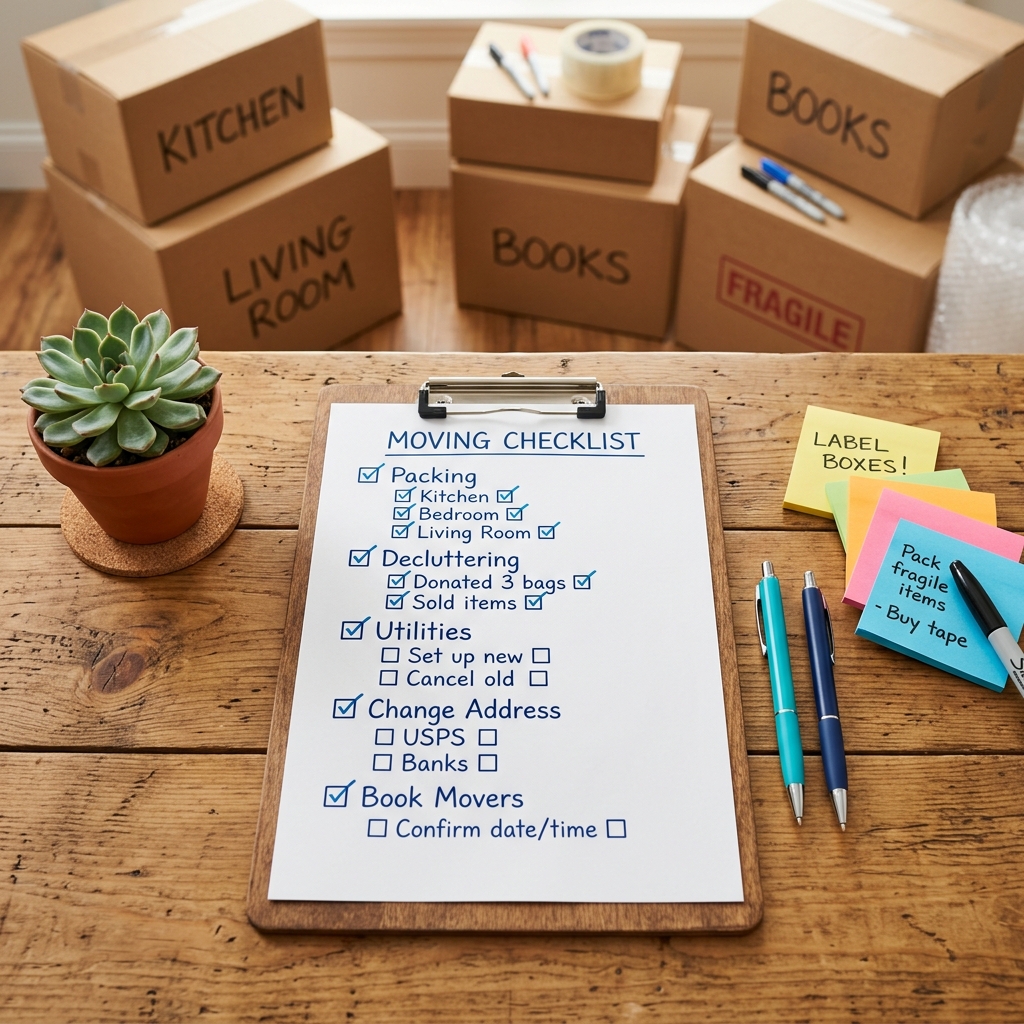 KITCHEN
LIVING
ROOM
BOOKS
BOOKS
FRAGILE
MOVING CHECKLIST
☑ Packing
☑ Kitchen ☑
☑ Bedroom ☑
☑ Living Room ☑
☑ Decluttering
☑ Donated 3 bags ☑
☑ Sold items ☑
☑ Utilities
☐ Set up new ☐
☐ Cancel old ☐
☑ Change Address
☐ USPS ☐
☐ Banks ☐
☑ Book Movers
☐ Confirm date/time ☐
LABEL
BOXES!
Pack
fragile
items
- Buy tape